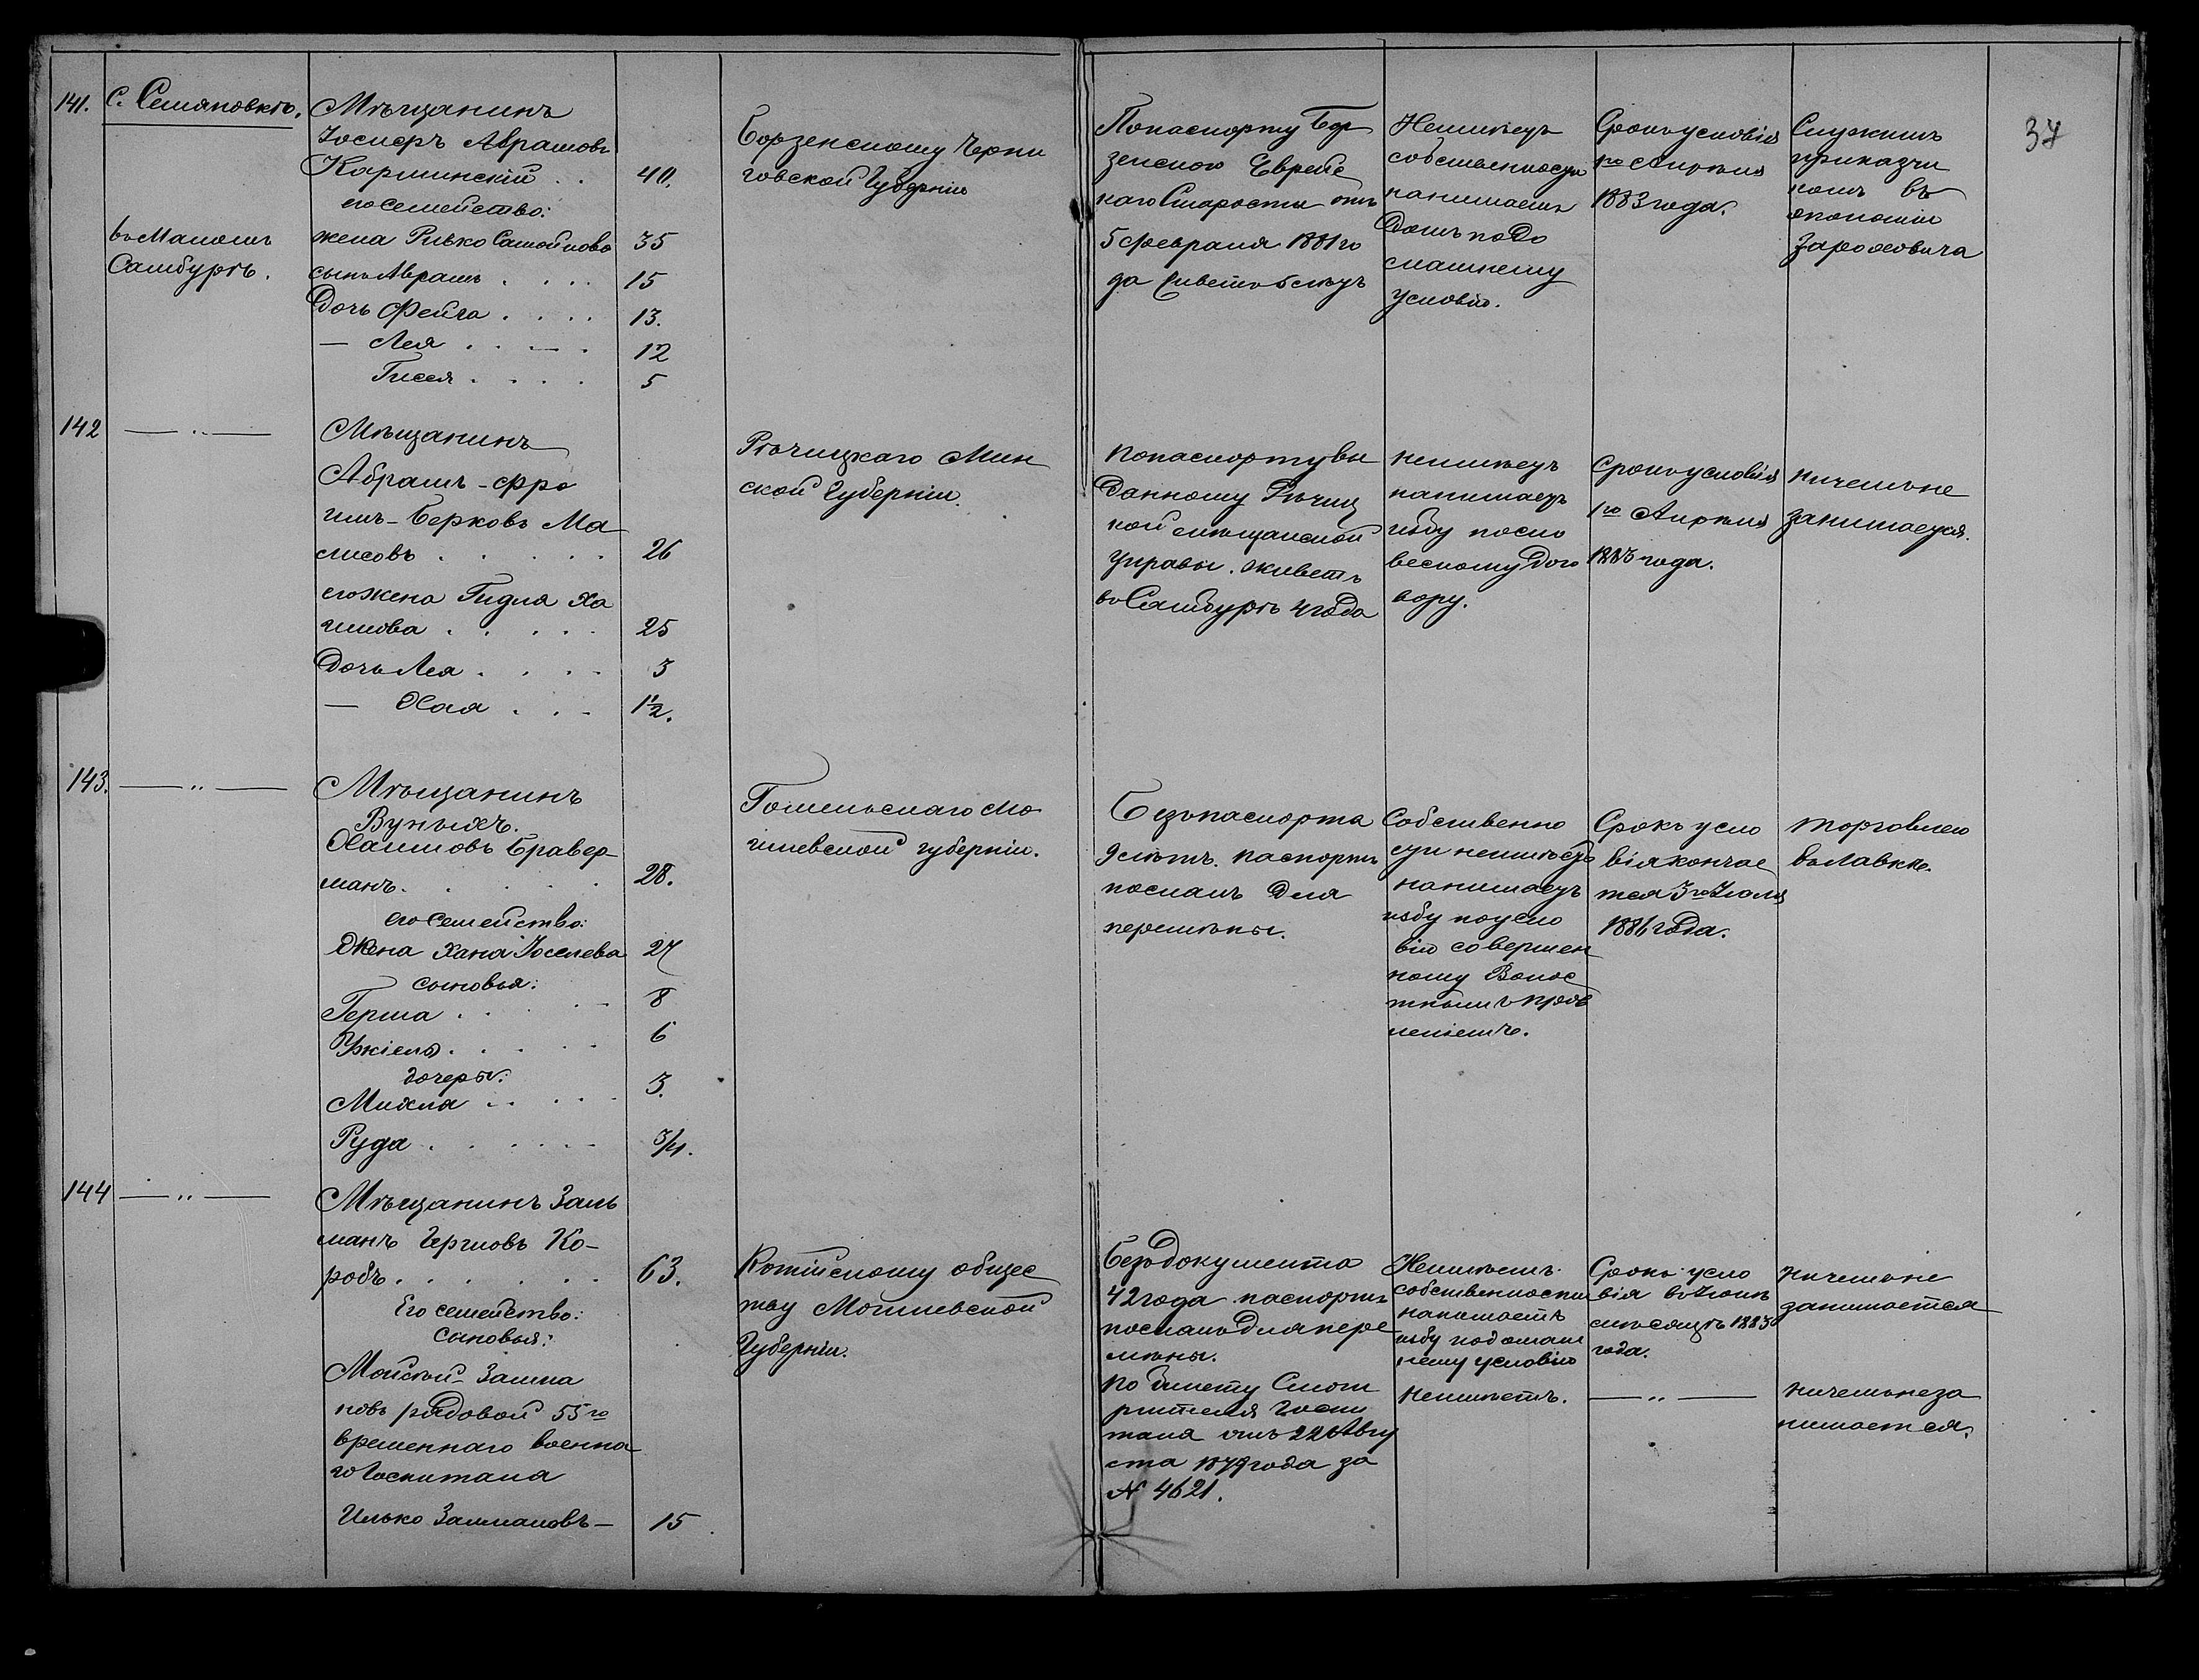 37
141.
с. Семяновкѣ.
въ Маломъ
Самбургѣ.
Мѣщанинъ
Іосперъ Аврамовъ
Карминскій . . 40.
его семейство:
жена Ривко Самойлова 35
сынъ Аврамъ . . . . 15
Дочь Фейга . . . . 13.
— Лея . . . . 12
Гисея . . . . 5
Борзенскому Черни
говской Губерніи
По паспорту Бор
зенского Еврейс
каго Старосты отъ
5 февраля 1881 го
да живетъ 5 лѣтъ
Неимѣетъ
собственности
нанимаетъ
Домъ по До
машнему
условію.
Срокъ условія
1го Апрѣля
1883 года.
Служитъ
приказчи
комъ въ
экономіи
142
— „ —
Мѣщанинъ
Абрамъ-Фро
имъ-Берковъ Ма
лисовъ . . . . . 26
его жена Гидля Ха
имова . . . . . 25
Дочь Лея . . . . 3
— Хая . . . 1½.
Рѣчицкаго Мин
ской Губерніи.
По паспорту вы
данному Рѣчиц
кой мѣщанской
управы. живетъ
въ Самбургѣ 4 года
неимѣетъ
нанимаетъ
избу по сло
весному дого
вору.
Срокъ условія
1го Апрѣля
1883 года.
ничемъ не
занимается.
143.
— „ —
Мѣщанинъ
Хаимовъ Бравер-
манъ. . . . . . 28.
его семейство:
Жена Хана Іоселева 27
сыновья:
Герша . . . . . 8
. . . . . 6
дочеры:
Михля . . . . . 3.
Руда . . . . . . 3/4.
Гомельскаго Мо
гилевской губерніи.
Безъ паспорта
9 лѣтъ. паспортъ
посланъ Для
перемѣны.
Собственно
сти неимѣетъ
нанимаетъ
избу по усло
вію совершен
ному Волос
тнымъ прав
леніемъ.
Срокъ усло
вія кончае
тся 3го Іюля
1886 года.
торговлею
въ лавкѣ.
144
— „ —
Мѣщанинъ Заль
манъ Гершовъ Ко-
робъ . . . . . . . 63.
Его семейство:
сыновья:
Мойсѣй-Залма
новъ рядовой 55го
временнаго военна
го Госпиталя
Илько Залмановъ — 15
общес
тву Могилевской
Губерніи.
Безъ документа
42 года паспортъ
посланъ для пере
мѣны.
по билету Смот
рителя Госпи
таля отъ 22 Авгу
ста 1879 года за
№ 4621.
Неимѣетъ
собственности
нанимаетъ
избу по домаш
нему условію
неимѣетъ.
Срокъ усло
вія въ Іюнѣ
мѣсяцѣ 1883
года.
— „ —
ничемъ не
занимается
ничемъ не за
нимается.